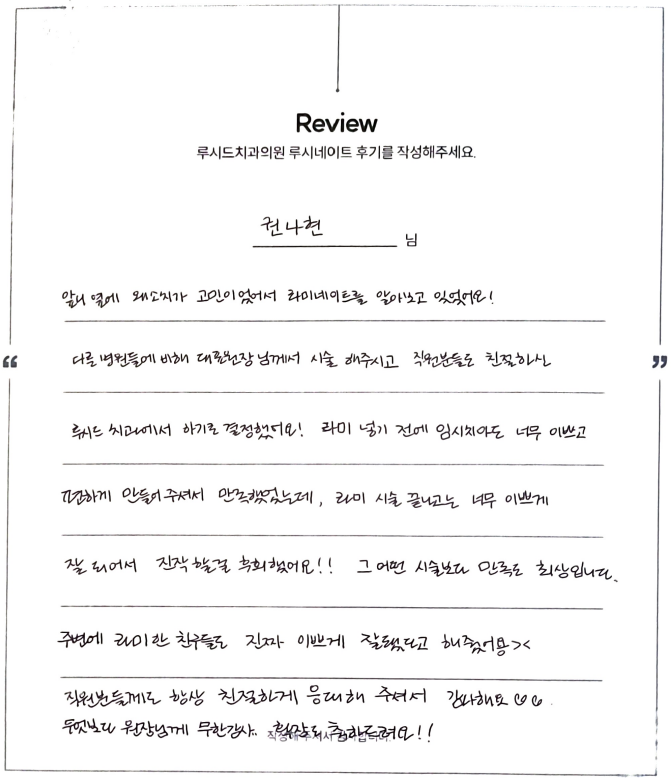 Review
루시드치과의원 루시네이트 후기를 작성해주세요.
권나현 님
앞니 옆에 왜소치가 고민이었어서 라미네이트를 알아보고 있었어요!
다른 병원들에 비해 대표원장님께서 시술 해주시고 직원분들도 친절하신
루시드 치과에서 하기로 결정했어요! 라미 넣기 전에 임시치아도 너무 이쁘고
편하게 만들어주셔서 만족했었는데, 라미 시술 끝나고는 너무 이쁘게
잘 되어서 진작 할걸 후회했어요!! 그 어떤 시술보다 만족도 최상입니다.
주변에 라미한 친구들도 진짜 이쁘게 잘됐다고 해줬어용><
직원분들께도 항상 친절하게 응대해 주셔서 감사해요
무엇보다 원장님께 무한감사.. 확장도 축하드려요!!